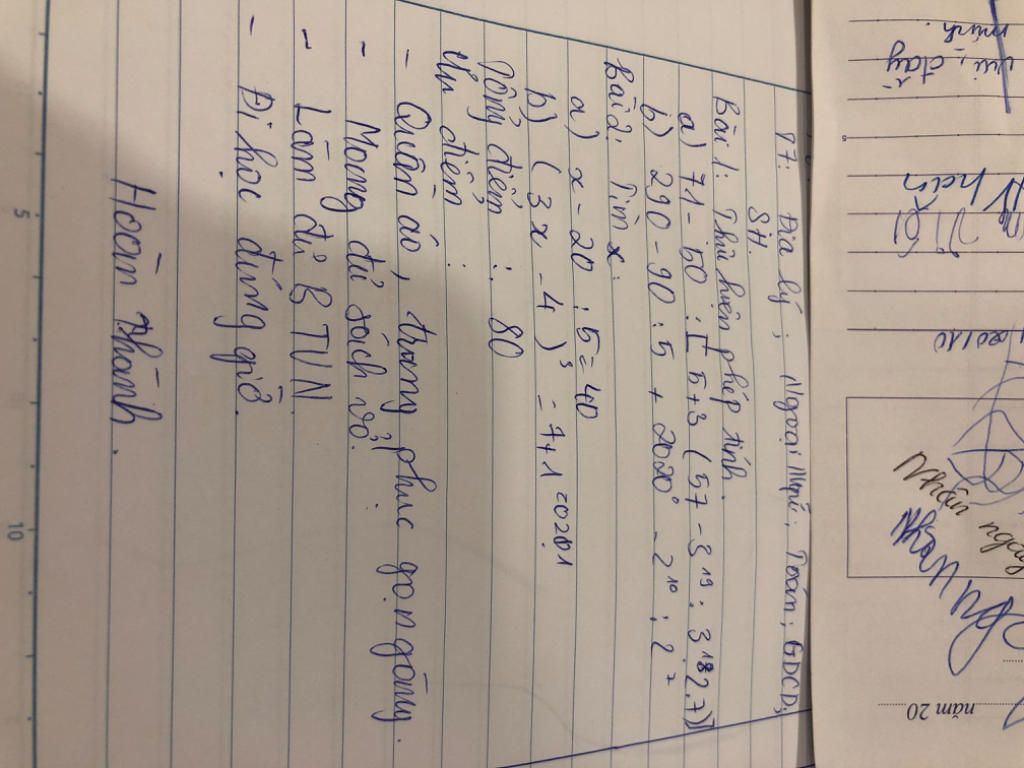 T7: Địa lý; Ngoại ngữ; Toán; GDCD;
SH.
Bài 1: Thực hiện phép tính.
a) 71 - 50 : [5+3 (57 - 3¹⁹ : 3¹⁸ 2.7)]
b) 290 - 90 : 5 + 2020⁰ - 2¹⁰ : 2⁷
Bài 2: Tìm x.
a) x - 20 : 5 = 40
b) (3x - 4)³ = 7 + 1²⁰²⁰¹
Tổng điểm : 80
Ưu điểm :
- Quần áo, trang phục gọn gàng.
- Mang đủ sách vở.
- Làm đủ BTVN
- Đi học đúng giờ.
Hoàn thành.
mình.
vui, dạy
năm 20
5
10